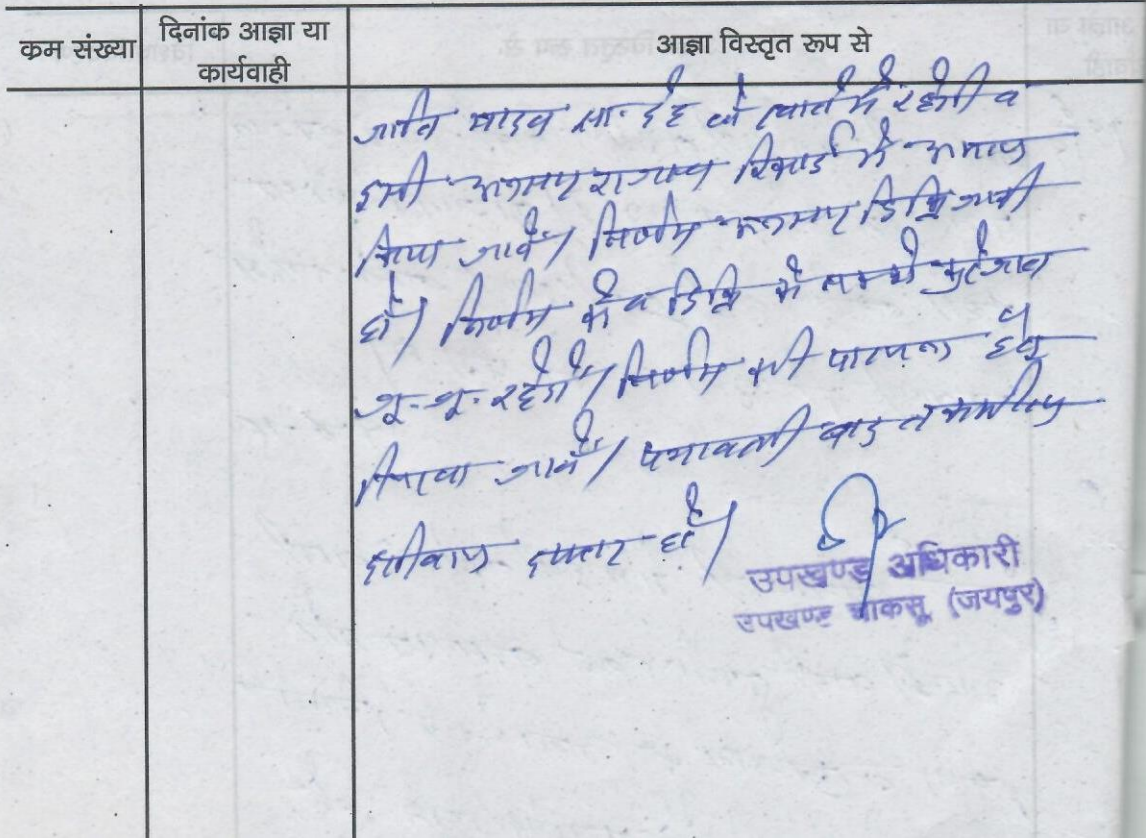 क्रम संख्या
दिनांक आज्ञा या
कार्यवाही
आज्ञा विस्तृत रूप से
जाति यादव सा. देह के खाते में रहेगी व
इसी अनुसार राजस्व रिकार्ड में अमल
किया जावे। निर्णय अनुसार डिक्री जारी
हो। निर्णय के व डिक्री में
रहेंगे। निर्णय की पालना हेतु
जावे। पत्रावली बाद तकमील
दफ्तर हो।
उपखण्ड अधिकारी
उपखण्ड चाकसू (जयपुर)